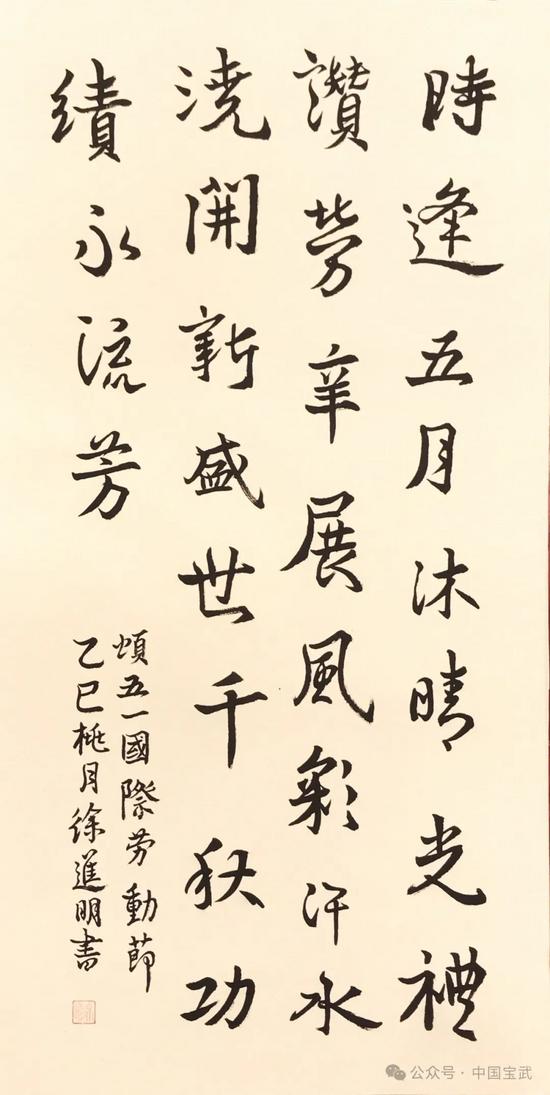 時逢五月沐晴光禮
讃勞辛展風彩汗水
澆開新盛世千秋功
績永流芳
頌五一國際劳動節
乙巳桃月徐進明書
公众号·中国宝武